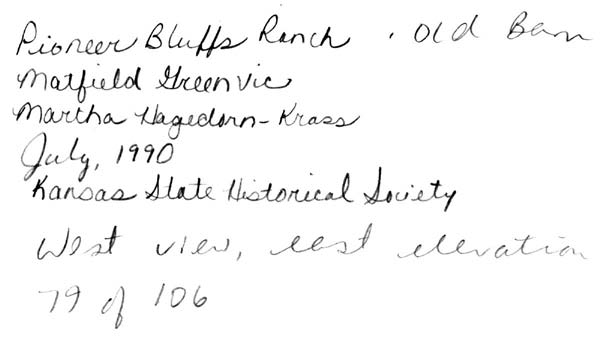 Pioneer Bluffs Ranch . Old Barn
Matfield Green vic
Martha Hagedorn-Krass
July, 1990
Kansas State Historical Society
West view, east elevation
79 of 106